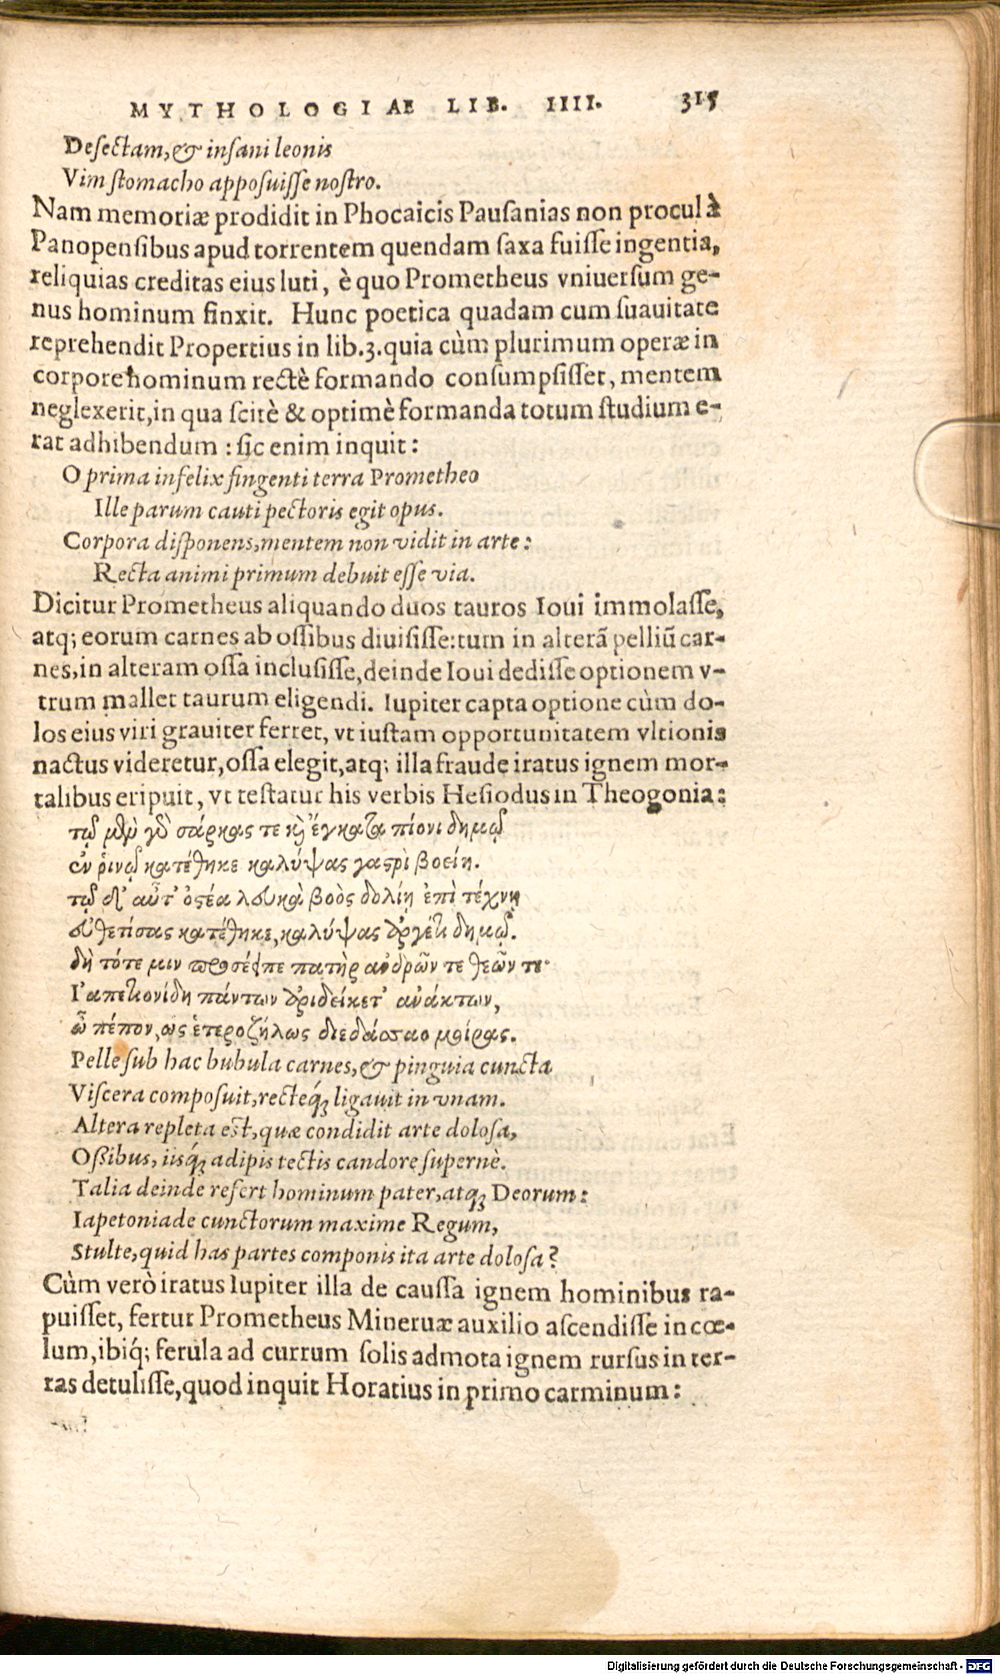 MYTHOLOGIAE LIB. IIII. 315
Desectam, & insani leonis
Vim stomacho apposuisse nostro.
Nam memoriæ prodidit in Phocaicis Pausanias non procul à
Panopensibus apud torrentem quendam saxa fuisse ingentia,
reliquias creditas eius luti, è quo Prometheus vniuersum ge-
nus hominum finxit. Hunc poetica quadam cum suauitate
reprehendit Propertius in lib.3. quia cùm plurimum operæ in
corpore hominum rectè formando consumpsisset, mentem
neglexerit, in qua scitè & optimè formanda totum studium e-
rat adhibendum : sic enim inquit:
O prima infelix fingenti terra Prometheo
Ille parum cauti pectoris egit opus.
Corpora disponens, mentem non vidit in arte:
Recta animi primum debuit esse via.
Dicitur Prometheus aliquando duos tauros Ioui immolasse,
atq; eorum carnes ab ossibus diuisisse: tum in alterã pelliũ car-
nes, in alteram ossa inclusisse, deinde Ioui dedisse optionem v-
trum mallet taurum eligendi. Iupiter capta optione cùm do-
los eius viri grauiter ferret, vt iustam opportunitatem vltionis
nactus videretur, ossa elegit, atq; illa fraude iratus ignem mor-
talibus eripuit, vt testatur his verbis Hesiodus in Theogonia:
τῷ μὲν γὸ σάρκας τε κὶ ἔγκατα πίονι δημῷ
ἐν ῥινῷ κατέθηκε καλύψας γαστρὶ βοείη.
τῷ δ' αὖτ' ὀστέα λευκὰ βοὸς δολίῃ ἐπὶ τέχνῃ
εὐθετίσας κατέθηκε, καλύψας ἀργέτι δημῷ.
δὴ τότε μιν προσέειπε πατὴρ ἀνδρῶν τε θεῶν τε·
Ἰαπετιονίδη πάντων ἀριδείκετ' ἀνάκτων,
ὦ πέπον, ὡς ἑτεροζήλως διεδάσσαο μοίρας.
Pelle sub hac bubula carnes, & pinguia cuncta
Viscera composuit, recteq́; ligauit in vnam.
Altera repleta est, quæ condidit arte dolosa,
Ossibus, iisq́; adipis tectis candore supernè.
Talia deinde refert hominum pater, atq; Deorum:
Iapetoniade cunctorum maxime Regum,
Stulte, quid has partes componis ita arte dolosa?
Cùm verò iratus Iupiter illa de caussa ignem hominibus ra-
puisset, fertur Prometheus Mineruæ auxilio ascendisse in cœ-
lum, ibiq́; ferula ad currum solis admota ignem rursus in ter-
ras detulisse, quod inquit Horatius in primo carminum:
Digitalisierung gefördert durch die Deutsche Forschungsgemeinschaft - DFG